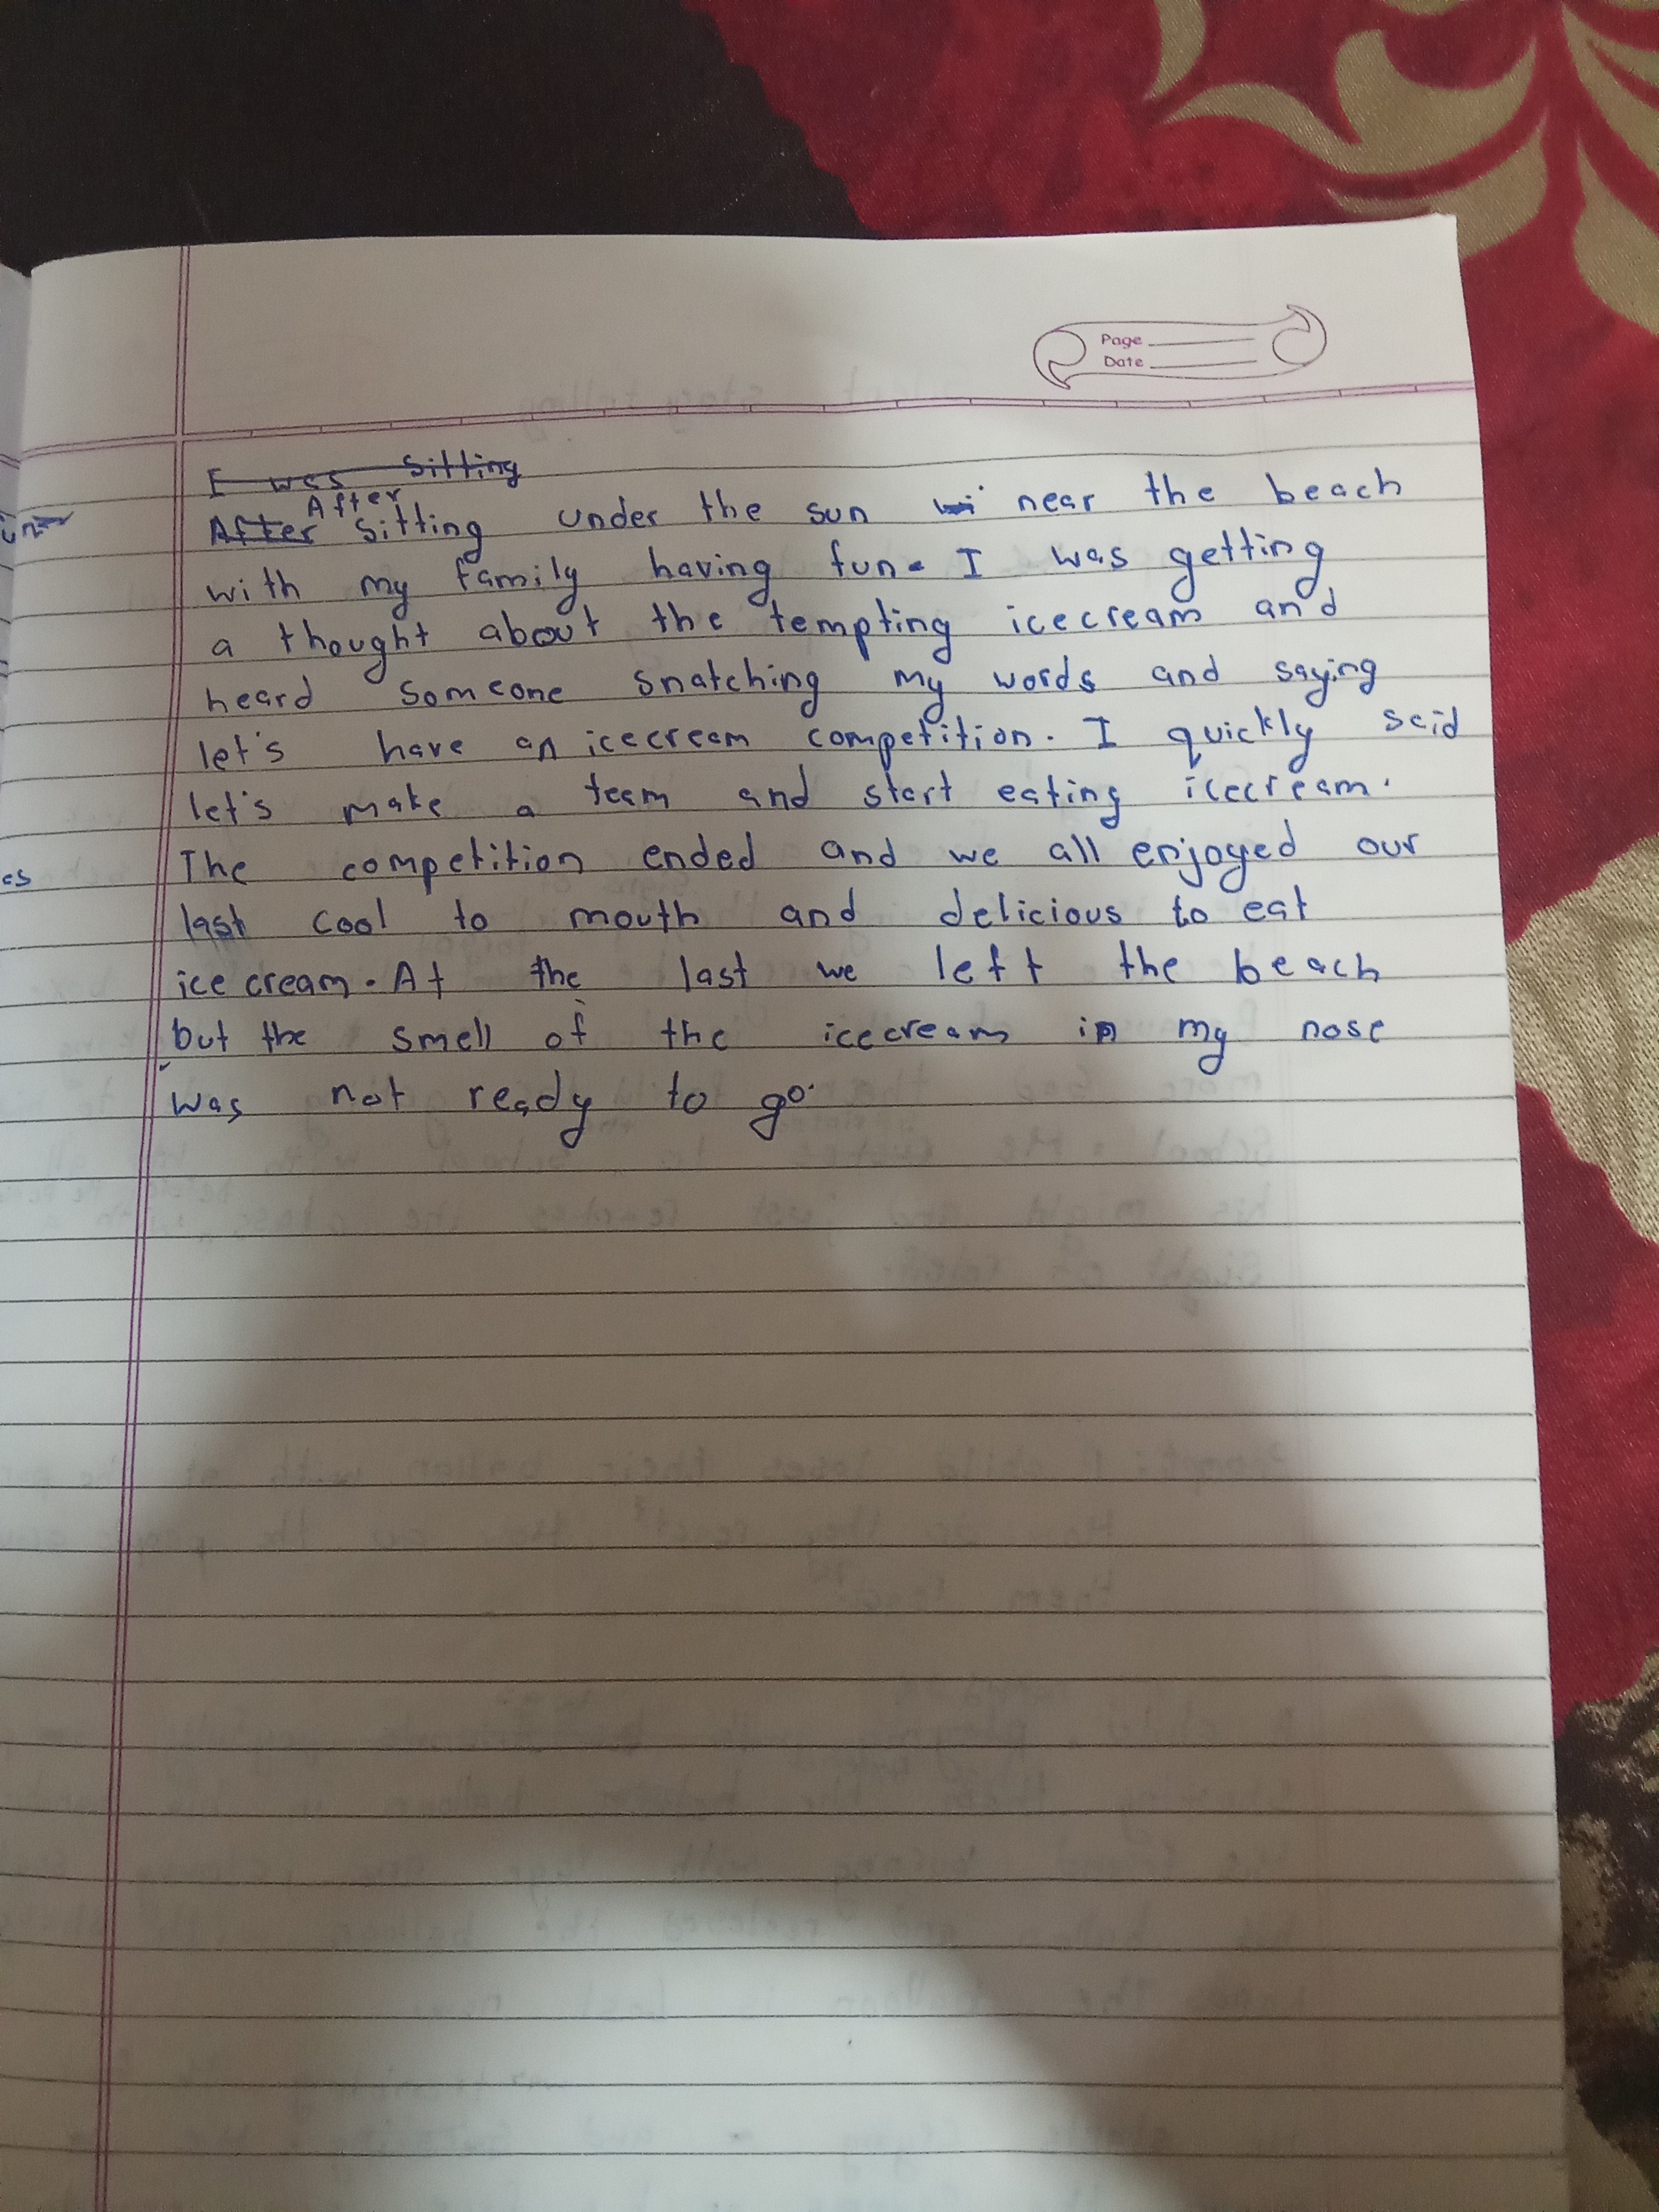 Page
Date
I was sitting
After
After sitting under the sun near the beach
with my family having fun. I was getting
a thought about the tempting icecream and
heard someone snatching my words and saying
let's have an icecream competition. I quickly said
let's make a team and start eating icecream.
The competition ended and we all enjoyed our
last cool to mouth and delicious to eat
ice cream. At the last we left the beach
but the smell of the icecream in my nose
was not ready to go.